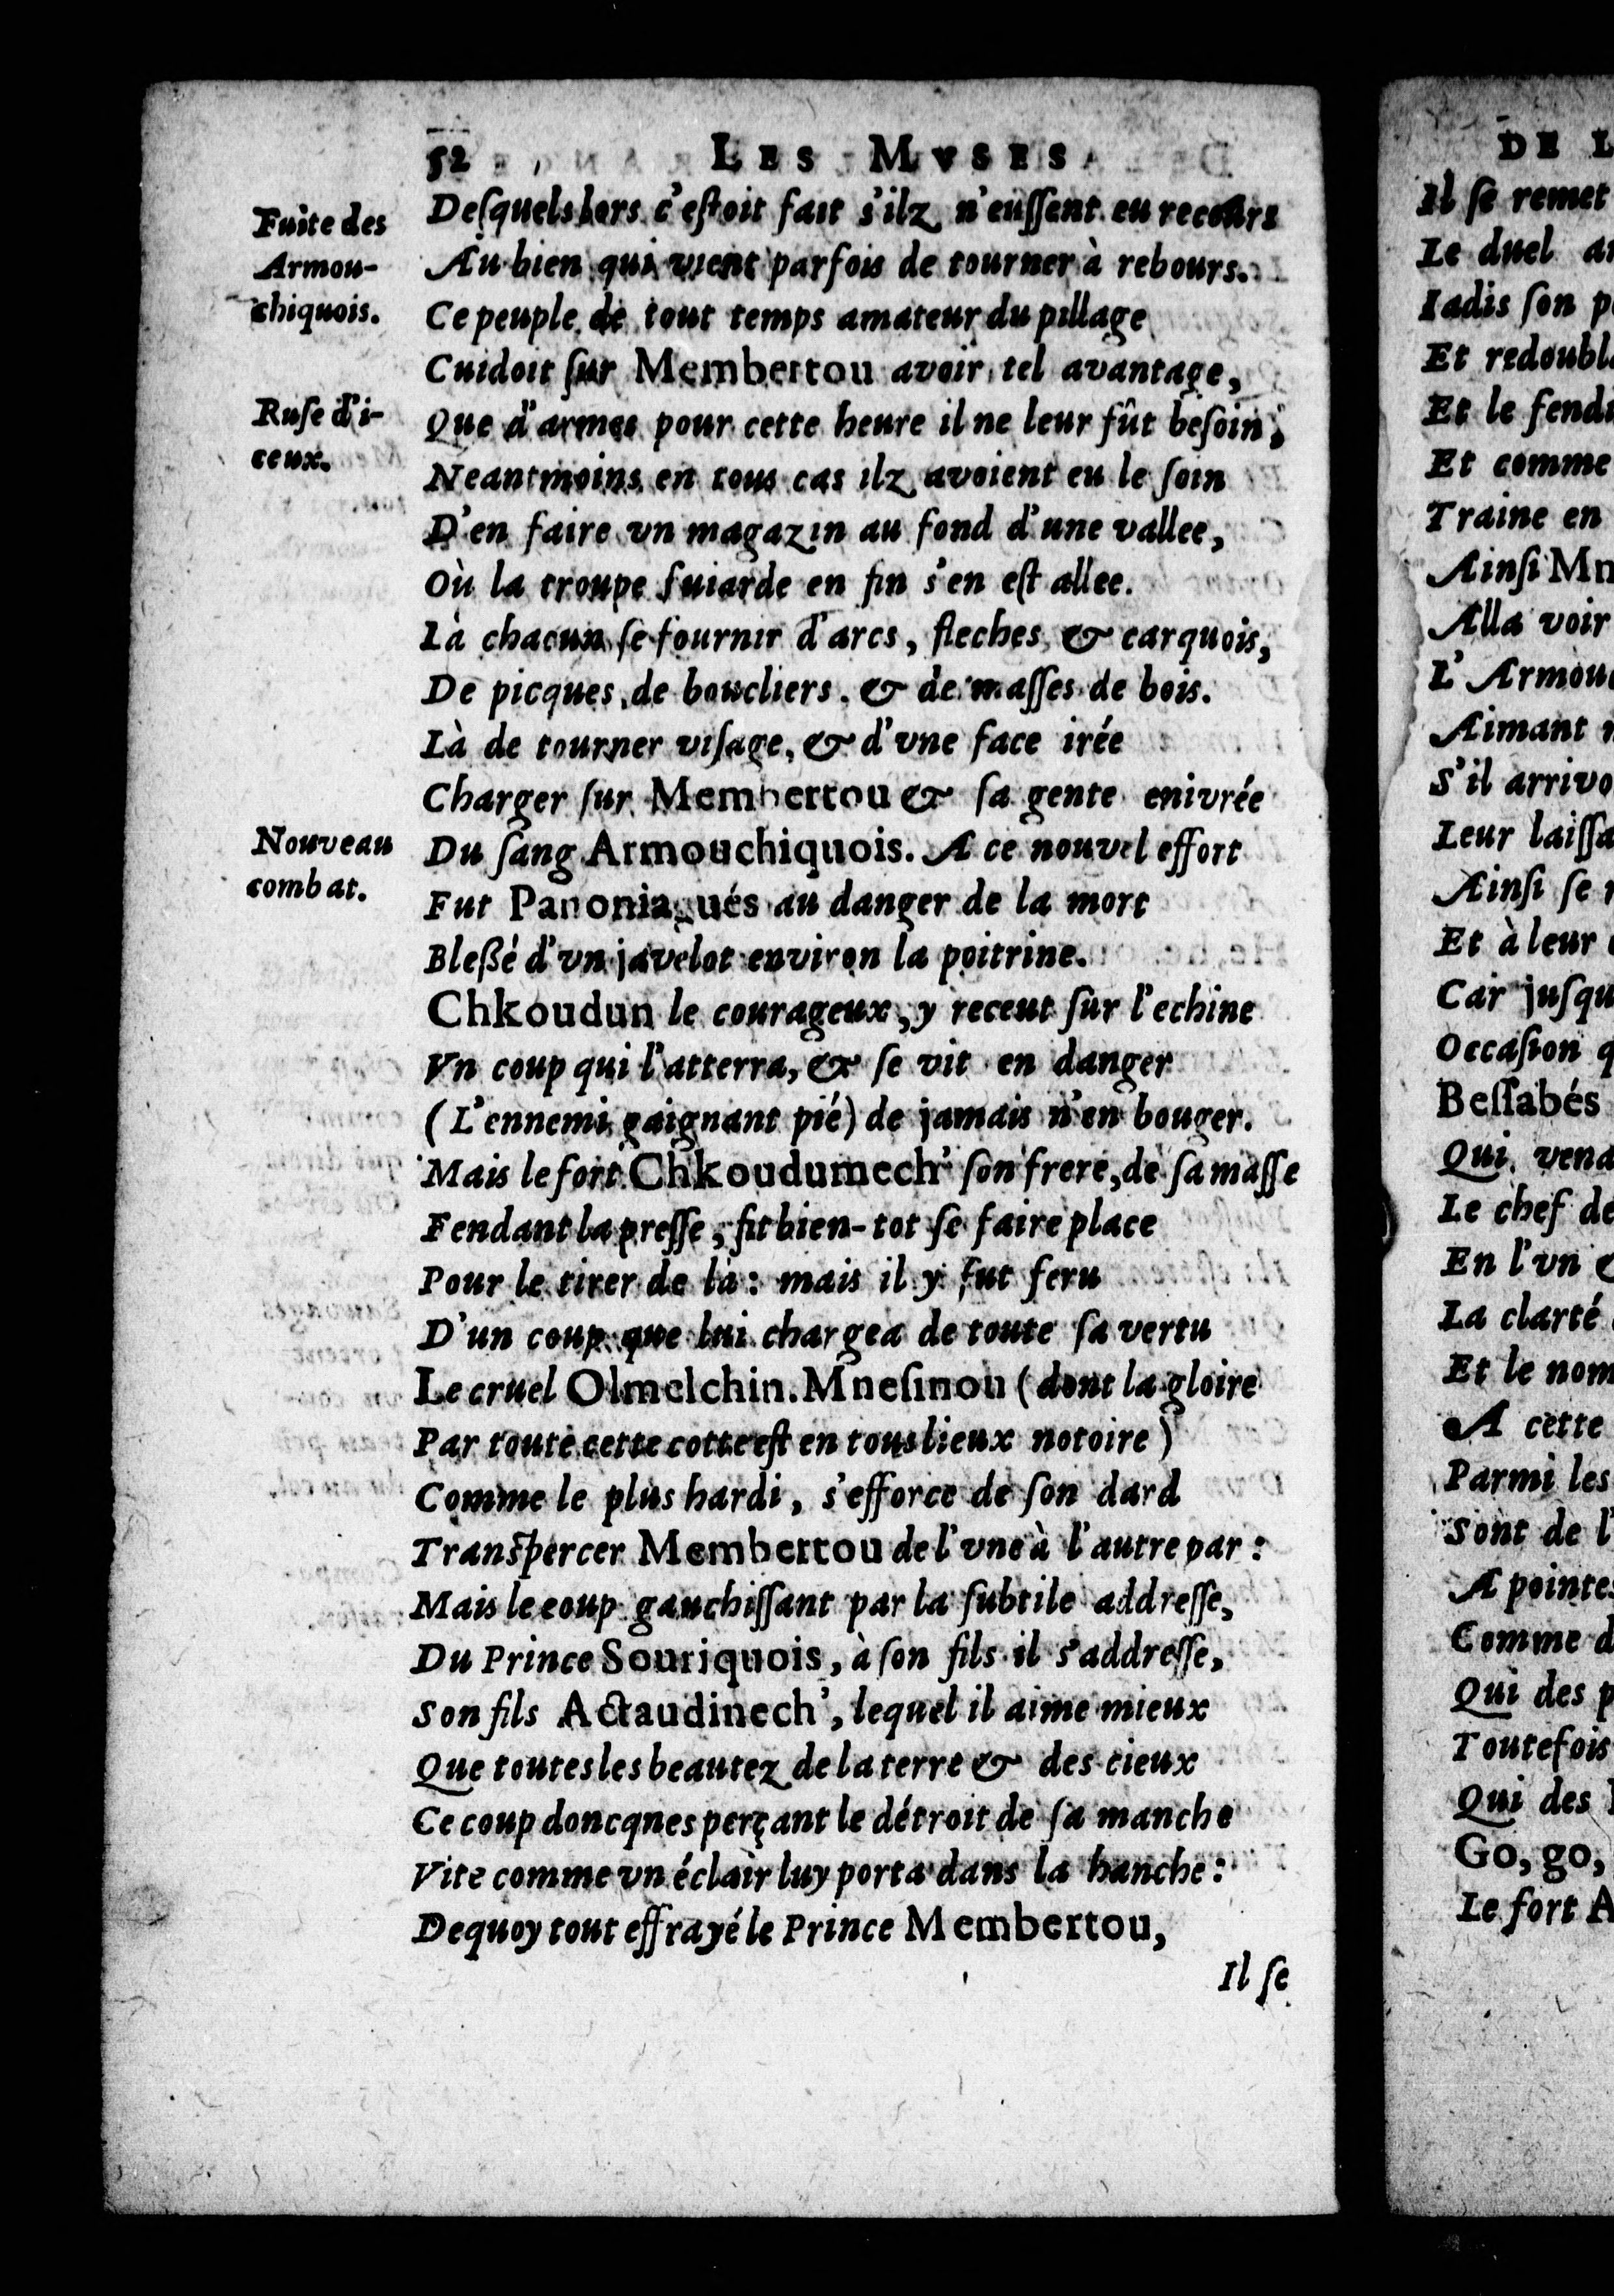 52 LES MVSES
Fuite des
Armou-
chiquois.
Ruse d'i-
ceux.
Nouveau
combat.
Deſquels lors c'eſtoit fait s'ilz n'euſſent eu recours
Au bien qui vient parfois de tourner à rebours.
Ce peuple de tout temps amateur du pillage
Cuidoit ſur Membertou avoir tel avantage,
Que d'armes pour cette heure il ne leur fût beſoin,
Neantmoins en tous cas ilz avoient eu le ſoin
D'en faire vn magazin au fond d'une vallee,
Où la troupe fuiarde en fin s'en eſt allee.
Là chacun ſe fournit d'arcs, fleches & carquois,
De picques, de boucliers, & de maſſes de bois.
Là de tourner viſage, & d'vne face irée
Charger ſur Membertou & ſa gente enivrée
Du ſang Armouchiquois. A ce nouvel effort
Fut Panoniagués au danger de la mort
Bleßé d'vn javelot environ la poitrine.
Chkoudun le courageux, y receut ſur l'echine
Vn coup qui l'atterra, & ſe vit en danger
(L'ennemi gaignant pié) de jamais n'en bouger.
Mais le fort Chkoudumech' ſon frere, de ſa maſſe
Fendant la preſſe, fit bien-tot ſe faire place
Pour le tirer de là: mais il y fut feru
D'un coup que lui chargea de toute ſa vertu
Le cruel Olmelchin. Mneſinou (dont la gloire
Par toute cette cotte eſt en tous lieux notoire)
Comme le plus hardi, s'efforce de ſon dard
Tranſpercer Membertou de l'vne à l'autre par:
Mais le coup gauchiſſant par la ſubtile addreſſe,
Du Prince Souriquois, à ſon fils il s'addreſſe,
Son fils Actaudinech', lequel il aime mieux
Que toutes les beautez de la terre & des cieux
Ce coup doncqnes perçant le détroit de ſa manche
Vite comme vn éclair luy porta dans la hanche:
Dequoy tout effrayé le Prince Membertou,
Il ſe
DE L
Il ſe remet
Le duel
Iadis ſon
Et redoubl
Et le fend
Et comme
Traine en
Ainſi Mn
Alla voir
L'Armou
Aimant
S'il arrivo
Leur laiſſa
Ainſi ſe
Et à leur
Car juſqu
Occaſion q
Beſſabés
Qui vend
Le chef de
En l'vn
La clarté
Et le nom
A cette
Parmi les
Sont de l'
A pointes
Comme d
Qui des p
Toutefois
Qui des
Go, go,
Le fort A